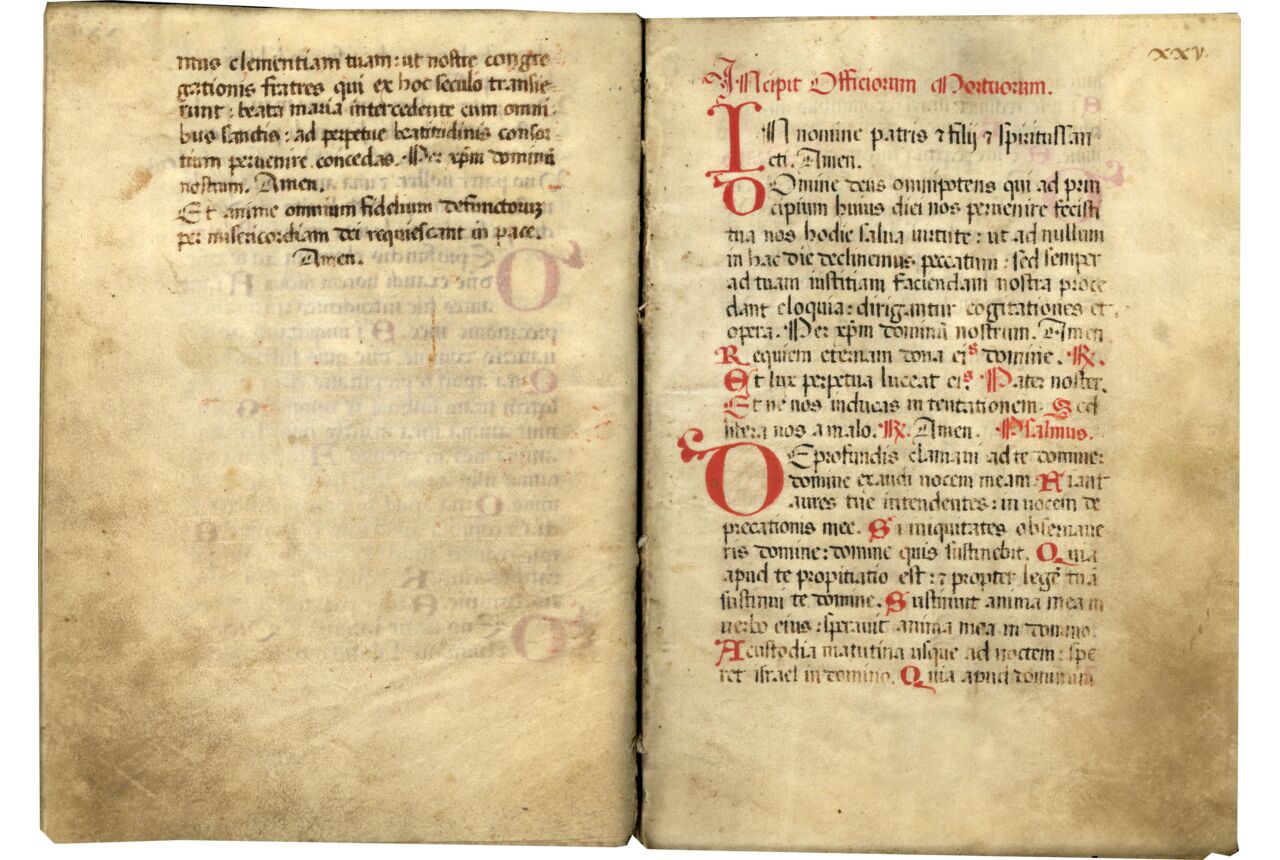 mus clementiam tuam: ut nostre congre
gationis fratres qui ex hoc seculo transie
runt: beata maria intercedente cum omni
bus sanctis: ad perpetue beatitudinis consor
tium pervenire concedas. Per xp̄m dominū
nostrum. Amen.
Et anime omnium fidelium defunctorum
per misericordiam dei requiescant in pace.
Amen.
xxv
INcipit Officiorum Mortuorum.
IN nomine patris ⁊ filij ⁊ spiritussan
cti. Amen.
DOmine deus omnipotens qui ad prin
cipium huius diei nos pervenire fecisti
tua nos hodie salva virtute: ut ad nullum
in hac die declinemus peccatum: sed semper
ad tuam iustitiam faciendam nostra proce
dant eloquia: dirigantur cogitationes et
opera. Per xp̄m dominū nostrum. Amen
Requiem eternam dona eis domine. ℟.
Et lux perpetua luceat eis Pater noster.
Et ne nos inducas in tentationem. Sed
libera nos a malo. ℟. Amen. Psalmus.
DE profundis clamavi ad te domine:
domine exaudi vocem meam. Fiant
aures tue intendentes: in vocem de
precationis mee. Si iniquitates observave
ris domine: domine quis sustinebit. Quia
apud te propitiatio est: ⁊ propter legē tuā
sustinui te domine. Sustinuit anima mea in
verbo eius: speravit anima mea in domino.
A custodia matutina usque ad noctem: spe
ret israel in domino. Quia apud dominum